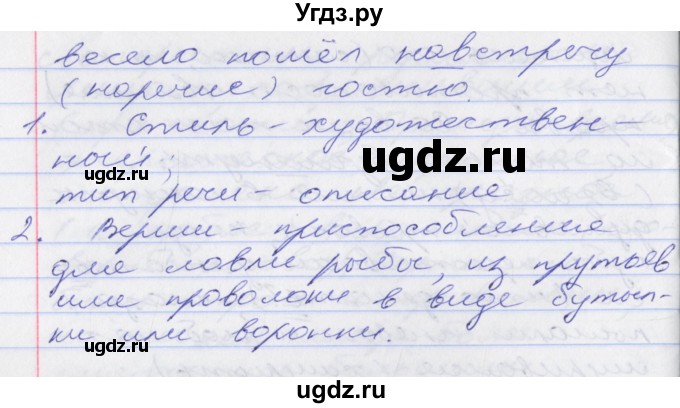 Угдз.ру
весело пошёл навстречу
(наречие) гостю.
1. Стиль - художествен-
ный;
тип речи - описание
2. Верши - приспособление
для ловли рыбы, из прутьев
или проволоки в виде бутыл-
ки или воронки.
ugdz.ru
ugdz.ru
ugdz.ru
ugdz.ru
ugdz.ru
ugdz.ru
ugdz.ru